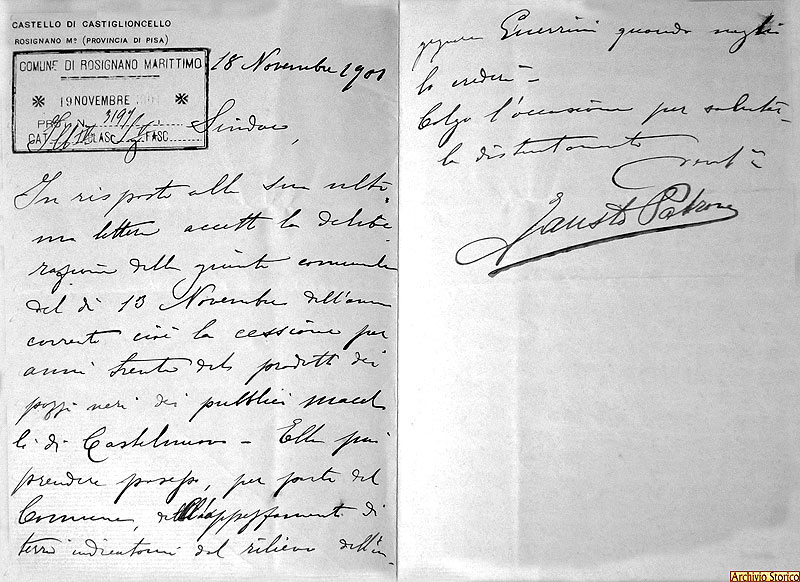 CASTELLO DI CASTIGLIONCELLO
ROSIGNANO Mº (PROVINCIA DI PISA)
COMUNE DI ROSIGNANO MARITTIMO
19 NOVEMBRE
PROT. N. 3197
CAT. CLAS. FASC.
18 Novembre 1901
Sig. Sindaco,
In risposta alla sua ulti-
ma lettera accetto la delibe-
razione della giunta comunale
del dì 13 Novembre dell'anno
corrente cioè la cessione per
anni trenta dei prodotti dei
pozzi neri dei pubblici macel-
li di Castelnuovo - Ella può
prendere possesso, per parte del
Comune, dell'appezzamento di
terra indicatomi dal rilievo dell'in-
gegnere Guerrini quando meglio
lo crederà -
Colgo l'occasione per salutar-
la distintamente
Fausto Patrone
Archivio Storico